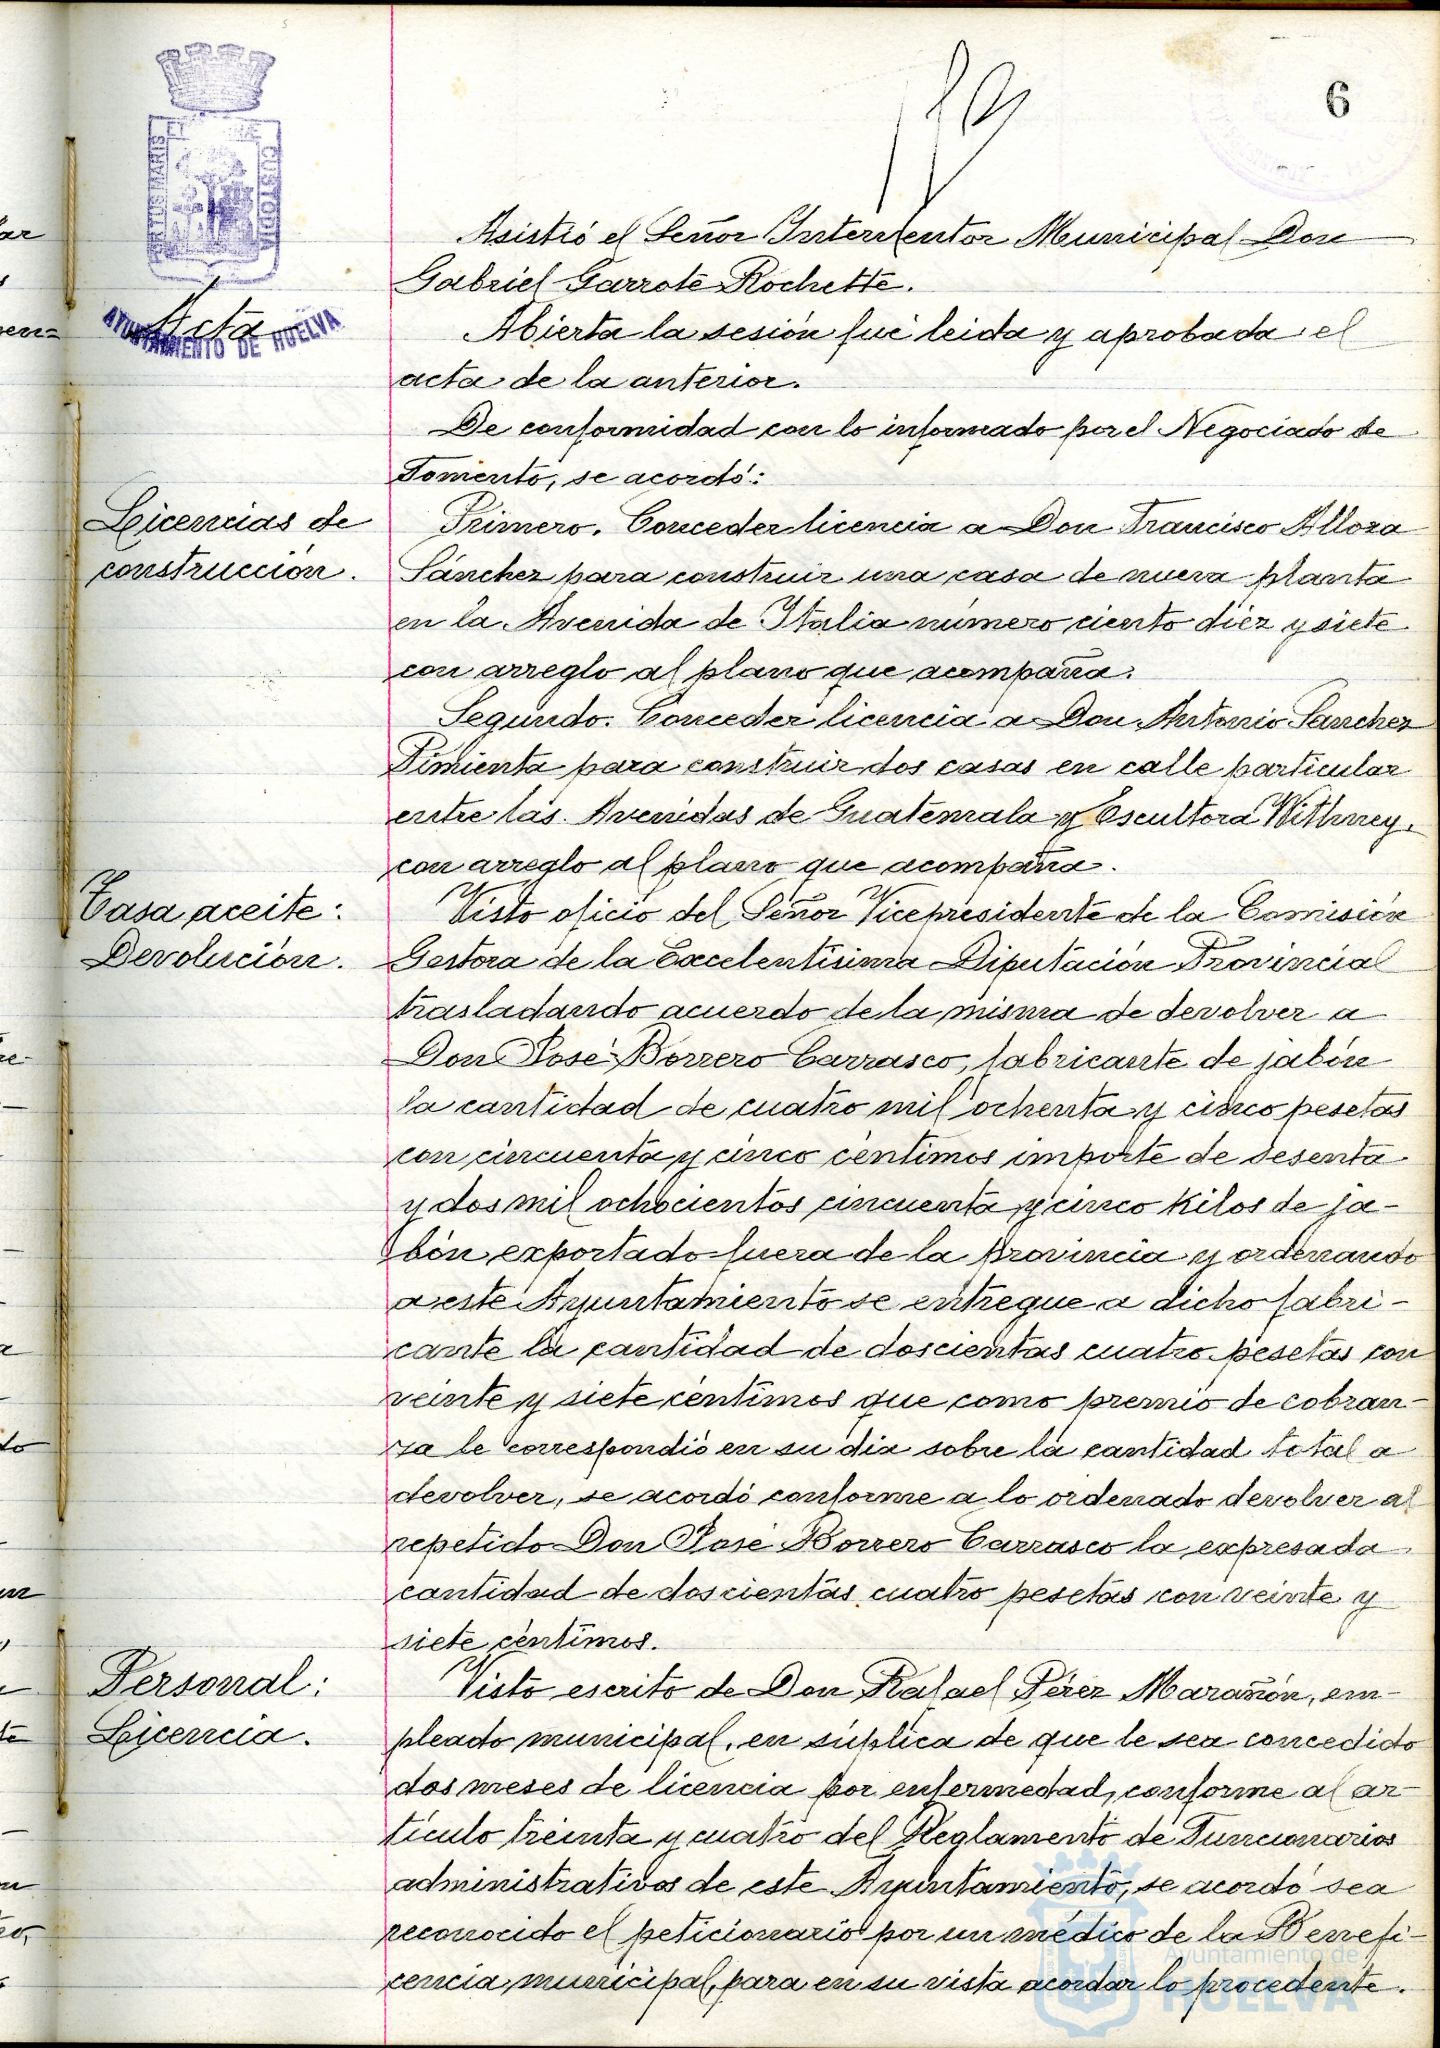 6
PORTUS MARIS ET TERRAE CUSTODIA
AYUNTAMIENTO DE HUELVA
Acta
Asistió el Señor Interventor Municipal Don
Gabriel Garrote Rochette.
Abierta la sesión fué leida y aprobada el
acta de la anterior.
De conformidad con lo informado por el Negociado de
Fomento, se acordó:
Licencias de
construcción.
Primero. Conceder licencia a Don Francisco Alloza
Sánchez para construir una casa de nueva planta
en la Avenida de Italia número ciento diéz y siete
con arreglo al plano que acompaña.
Segundo. Conceder licencia a Don Antonio Sanchez
Pimienta para construir dos casas en calle particular
entre las Avenidas de Guatemala y Escultora Withney,
con arreglo al plano que acompaña.
Tasa aceite:
Devolución.
Visto oficio del Señor Vicepresidente de la Comisión
Gestora de la Excelentisima Diputación Provincial
trasladando acuerdo de la misma de devolver a
Don José Borrero Carrasco, fabricante de jabón
la cantidad de cuatro mil ochenta y cinco pesetas
con cincuenta y cinco céntimos importe de sesenta
y dos mil ochocientos cincuenta y cinco kilos de ja-
bón exportado fuera de la provincia y ordenando
a este Ayuntamiento se entregue a dicho fabri-
cante la cantidad de doscientas cuatro pesetas con
veinte y siete céntimos que como premio de cobran-
za le correspondió en su dia sobre la cantidad total a
devolver, se acordó conforme a lo ordenado devolver al
repetido Don José Borrero Carrasco la expresada
cantidad de doscientas cuatro pesetas con veinte y
siete céntimos.
Personal:
Licencia.
Visto escrito de Don Rafael Pérez Marañón, em-
pleado municipal, en súplica de que le sea concedido
dos meses de licencia por enfermedad, conforme al ar-
tículo treinta y cuatro del Reglamento de Funcionarios
administrativos de este Ayuntamiento, se acordó sea
reconocido el peticionario por un médico de la Benefi-
cencia municipal, para en su vista acordar lo procedente.
Ayuntamiento de
HUELVA